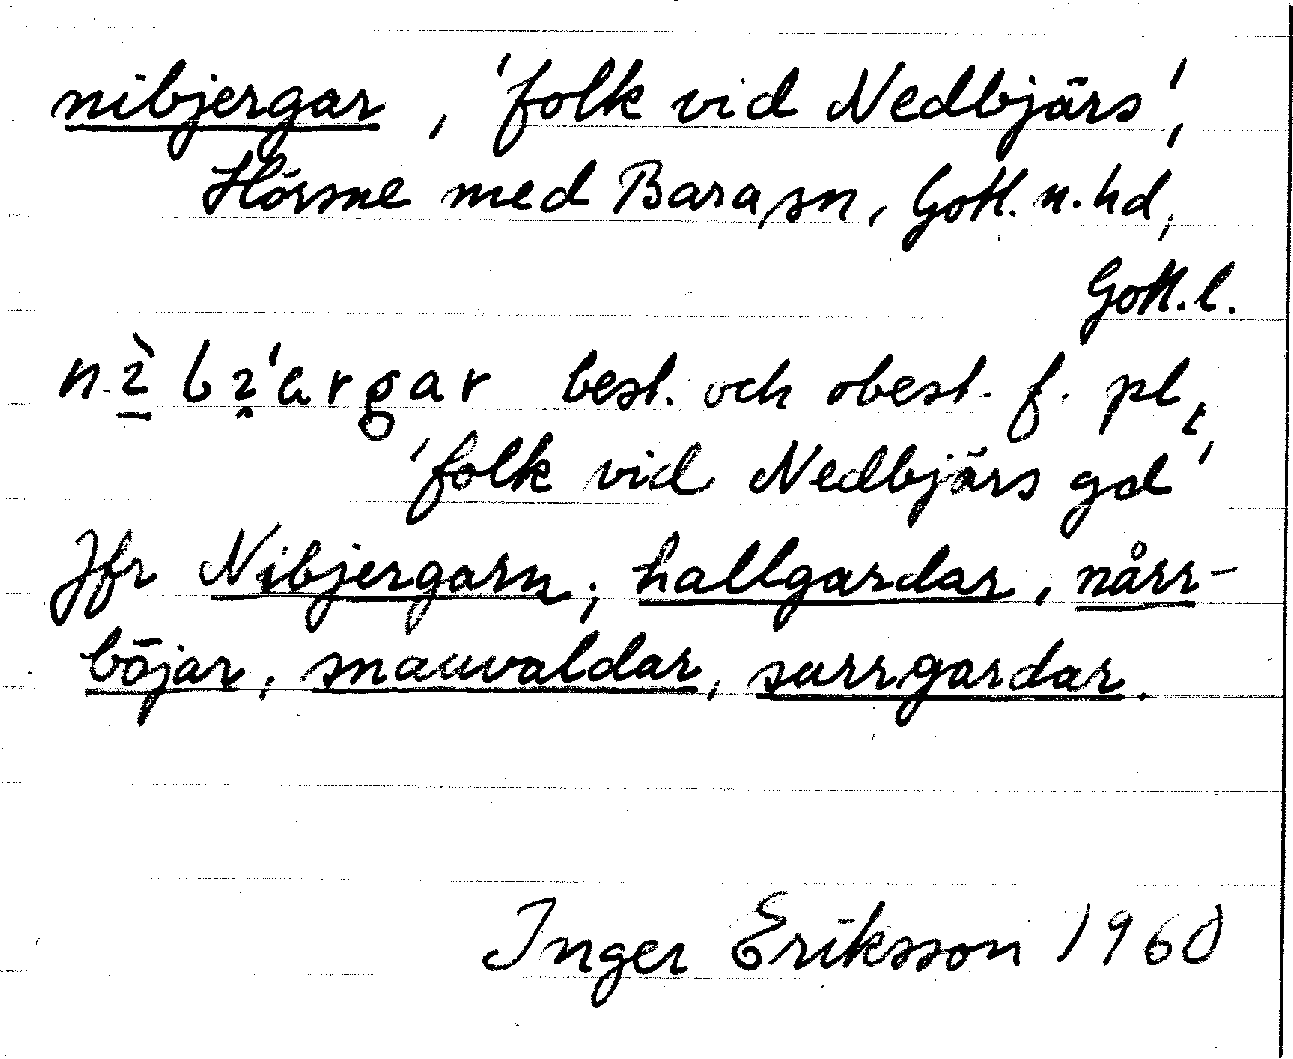 nibjergar, 'folk vid Nedbjärs',
Hörsne med Bara sn, Gotl. n. hd,
Gotl. l.
best. och obest. f. pl,
'folk vid Nedbjärs gd'
Jfr Nibjergarn, hallgardar, nårr-
böjar, snauvaldar, surrgardar.
Inger Eriksson 1960